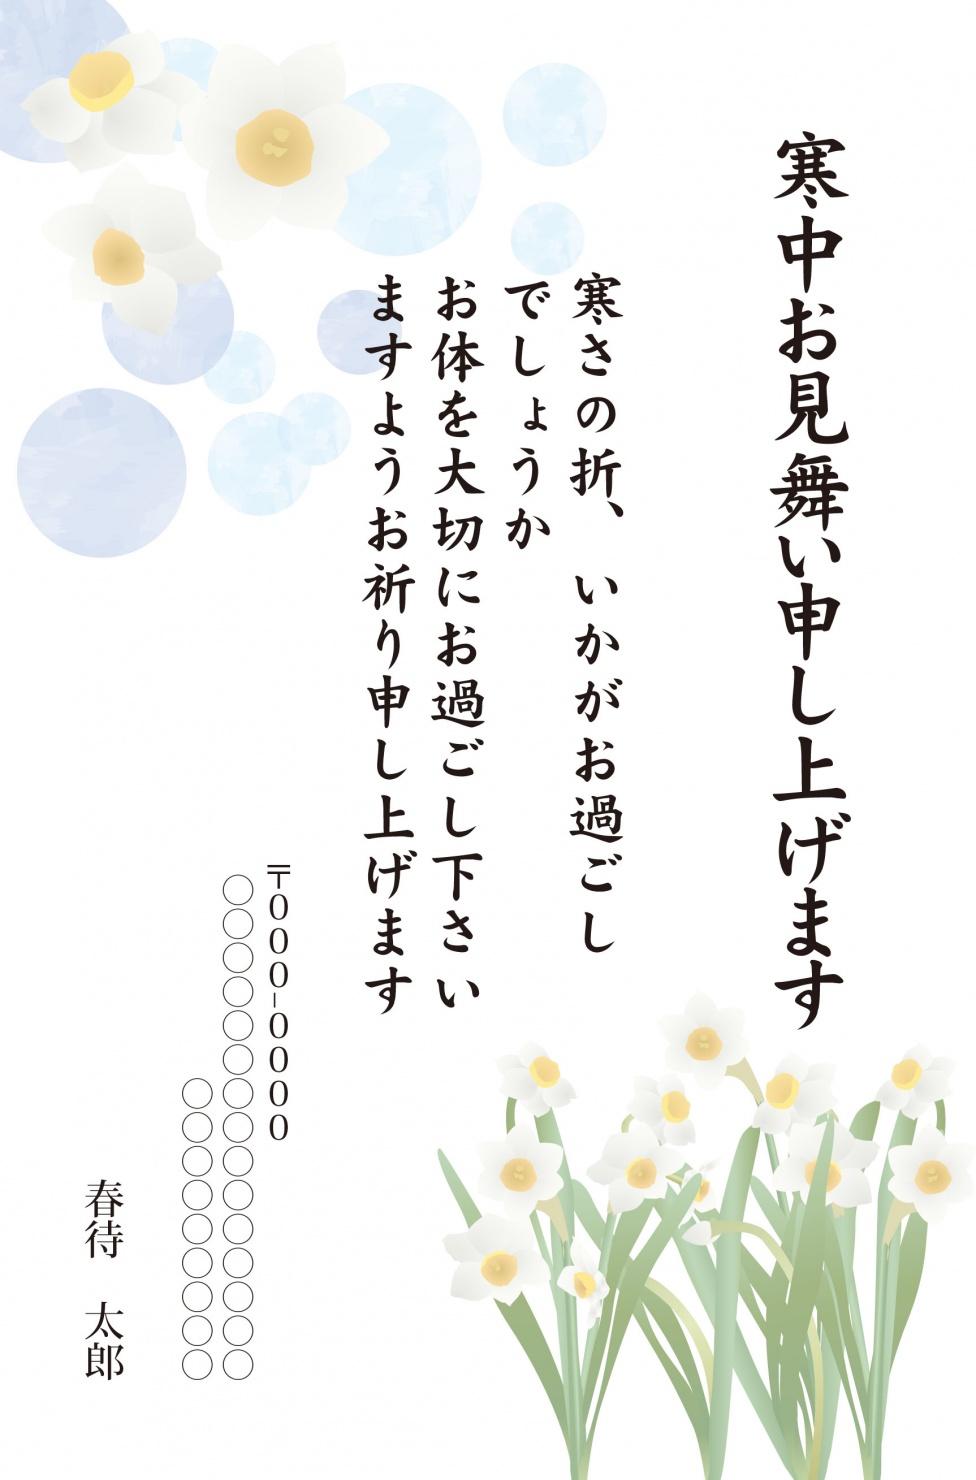 寒中お見舞い申し上げます
寒さの折、いかがお過ごし
でしょうか
お体を大切にお過ごし下さい
ますようお祈り申し上げます
〒000-0000
〇〇〇〇〇〇〇〇〇〇〇〇〇〇〇
〇〇〇〇〇〇〇〇〇
春待　太郎